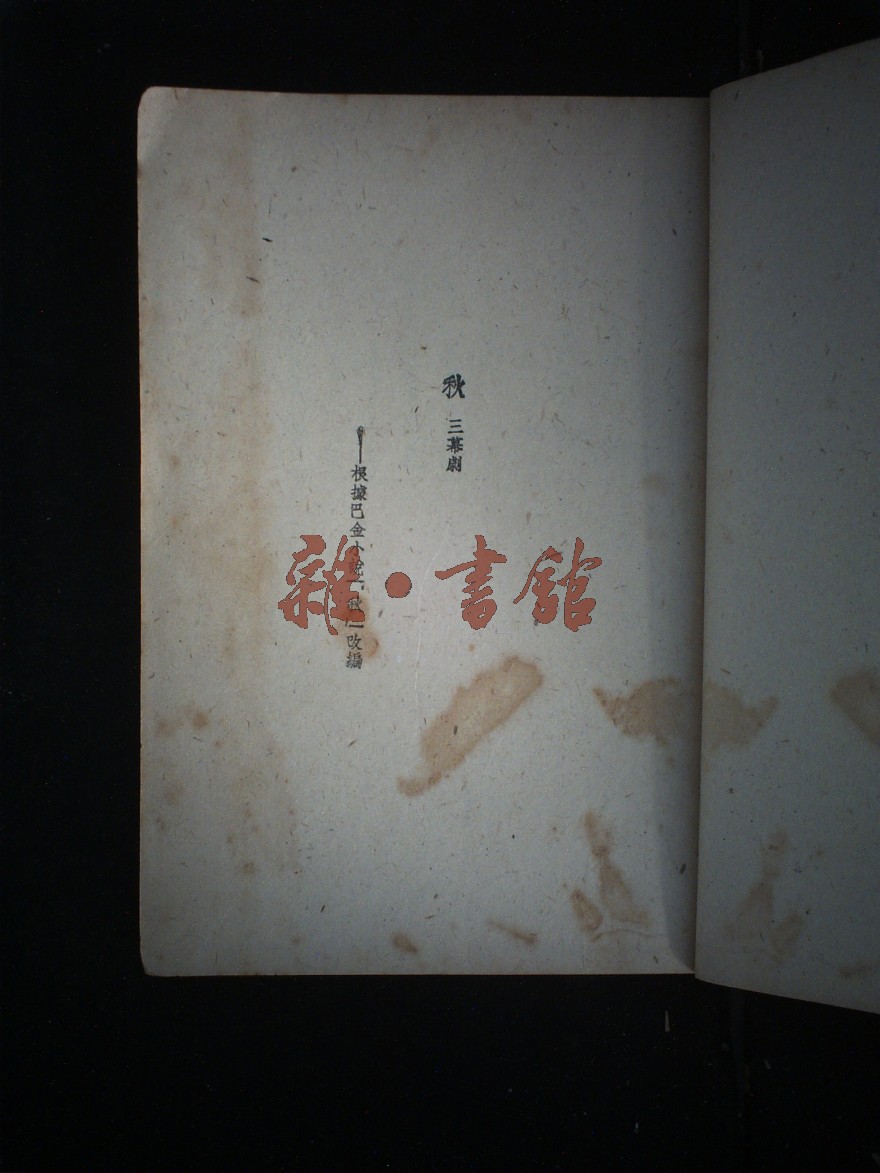 秋 三幕劇
——根據巴金小說「秋」改編
雜·書館